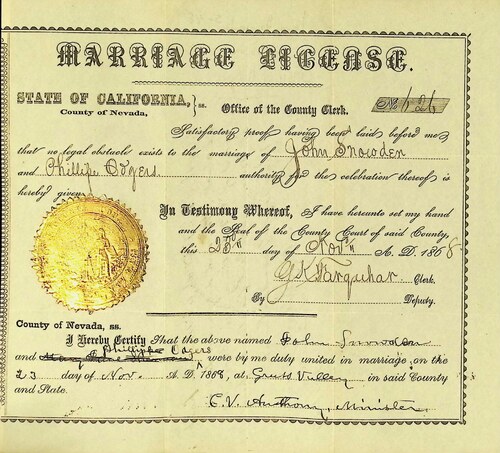 MARRIAGE LICENSE.
STATE OF CALIFORNIA, } ss. Office of the County Clerk. No. 626
County of Nevada,
Satisfactory proof having been laid before me
that no legal obstacle exists to the marriage of John Snowden
and Phillipe Ogers authority for the celebration thereof is
hereby given.
In Testimony Whereof, I have hereunto set my hand
and the Seal of the County Court of said County,
this 23rd day of Novr A. D. 1868
G K Farquhar Clerk.
By Deputy.
County of Nevada, ss.
I Hereby Certify That the above named John Snowden
Phillipe Ogers
and were by me duly united in marriage, on the
23 day of Nov. A. D. 1868, at Grass Valley in said County
and State.
C. V. Anthony, Minister.